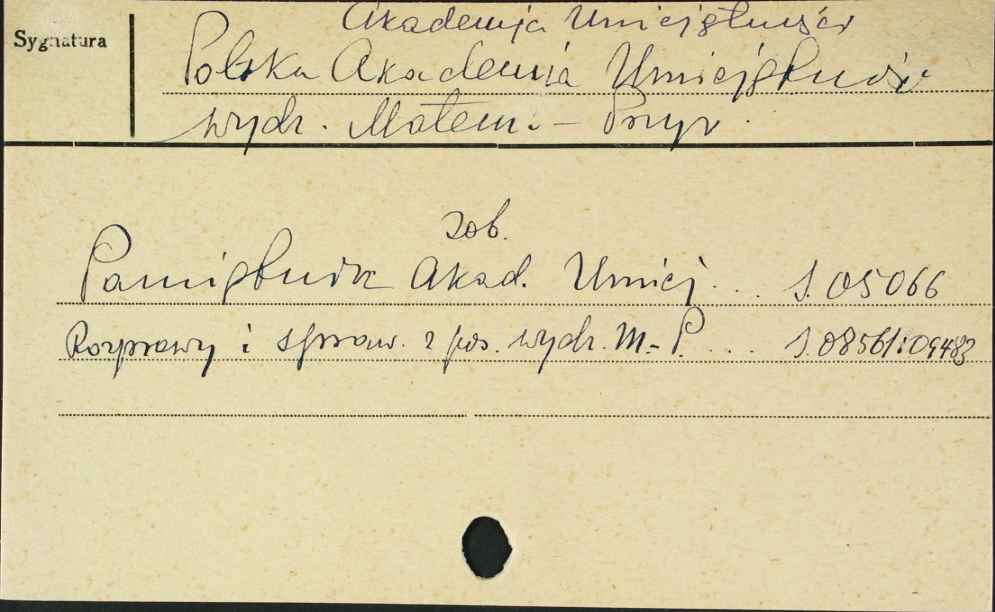 Akademja Umiejętności
Sygnatura
Polska Akademia Umiejętności
wydz. Matem. - Przyr.
zob.
Pamiętnik Akad. Umiej. .. S. 05066
Rozprawy i spraw. z pos. wydz. M.-P. ... S. 08561:09483